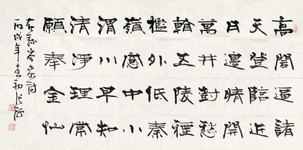 高閣逼諸
天登臨近
日邊晴開
萬井樹愁
看五陵煙
檻外低秦
嶺窗中小
渭川早知
清淨理常
願奉金仙
岑參詩
丙戌年